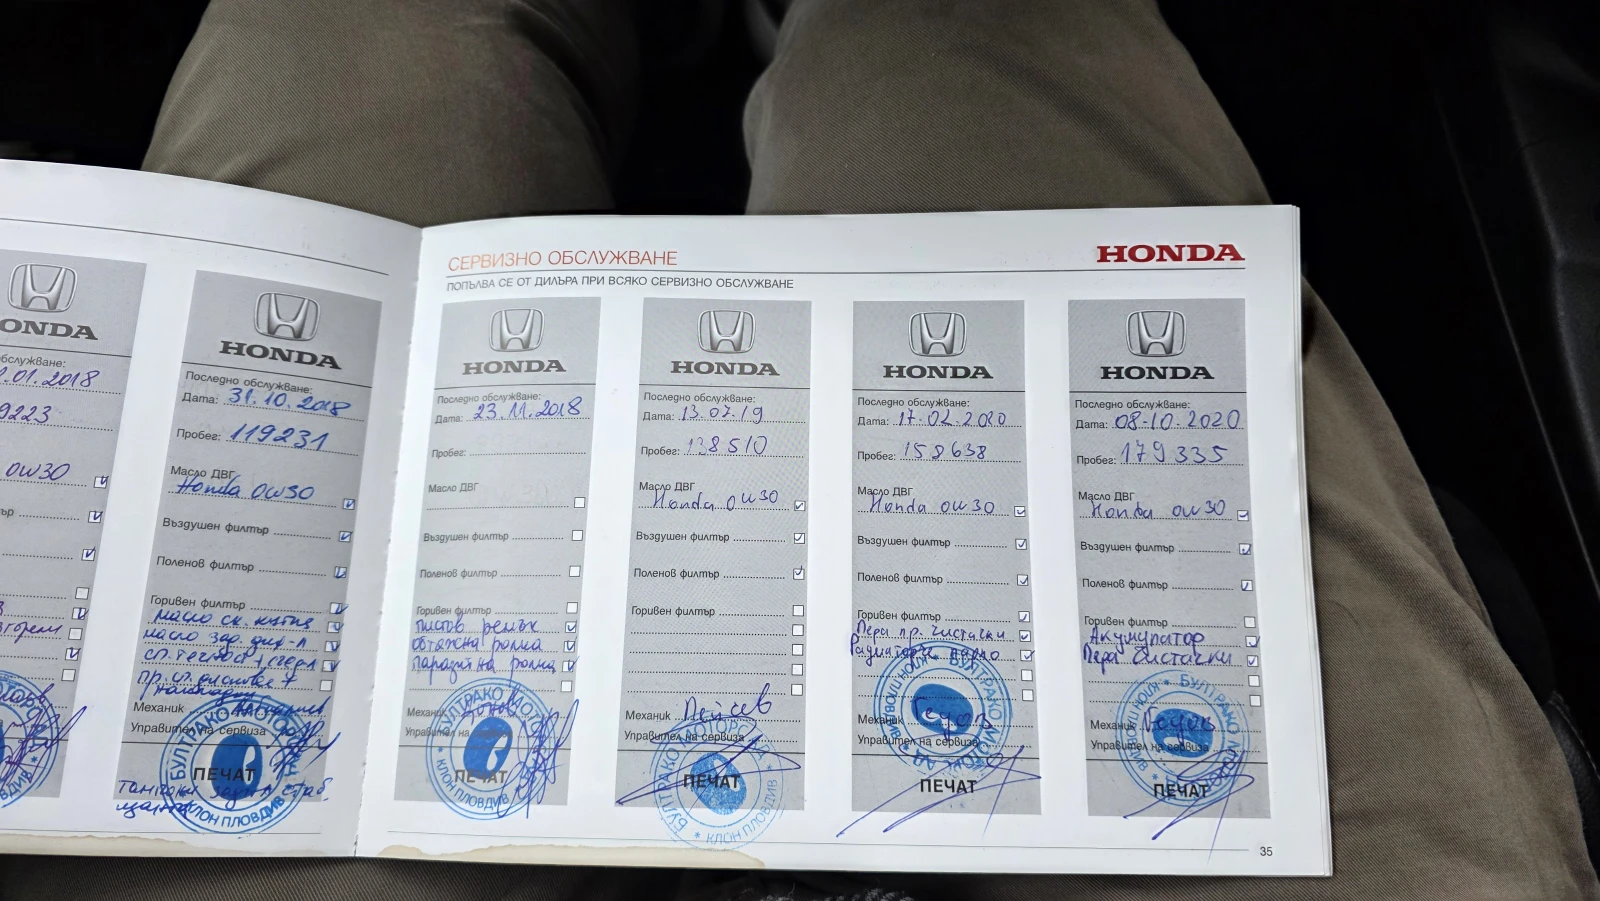 ONDA
бслужване:
.01.2018
9223
0W30
HONDA
Последно обслужване:
Дата: 31.10.2018
Пробег: 119231
Масло ДВГ
Honda 0W30
Въздушен филтър
Поленов филтър
Горивен филтър
масло ск. кутия
масло зад. диф-л
Механик
Управител на сервиза
ПЕЧАТ
БУЛТРАКО
КЛОН ПЛОВДИВ
СЕРВИЗНО ОБСЛУЖВАНЕ
HONDA
ПОПЪЛВА СЕ ОТ ДИЛЪРА ПРИ ВСЯКО СЕРВИЗНО ОБСЛУЖВАНЕ
HONDA
Последно обслужване:
Дата: 23.11.2018
Пробег:
Масло ДВГ
Въздушен филтър
Поленов филтър
Горивен филтър
пистов ремък
обтяжна ролка
паразитна ролка
Механик
Управител на
ПЕЧАТ
КЛОН ПЛОВДИВ
HONDA
Последно обслужване:
Дата: 13.07.19
Пробег: 138510
Масло ДВГ
Honda 0W30
Въздушен филтър
Поленов филтър
Горивен филтър
Механик Пейчев
Управител на сервиза
ПЕЧАТ
БУЛТРАКО
КЛОН ПЛОВДИВ
HONDA
Последно обслужване:
Дата: 17-02-2020
Пробег: 158638
Масло ДВГ
Honda 0W30
Въздушен филтър
Поленов филтър
Горивен филтър
Пера пр. чистачки
Механик
Управител на сервиза
БУЛТРАКО
ПЕЧАТ
HONDA
Последно обслужване:
Дата: 08-10-2020
Пробег: 179335
Масло ДВГ
Honda 0W30
Въздушен филтър
Поленов филтър
Горивен филтър
Акумулатор
Пера Чистачки
Механик
Управител на сервиза
БУЛТРАКО
ПЕЧАТ
35